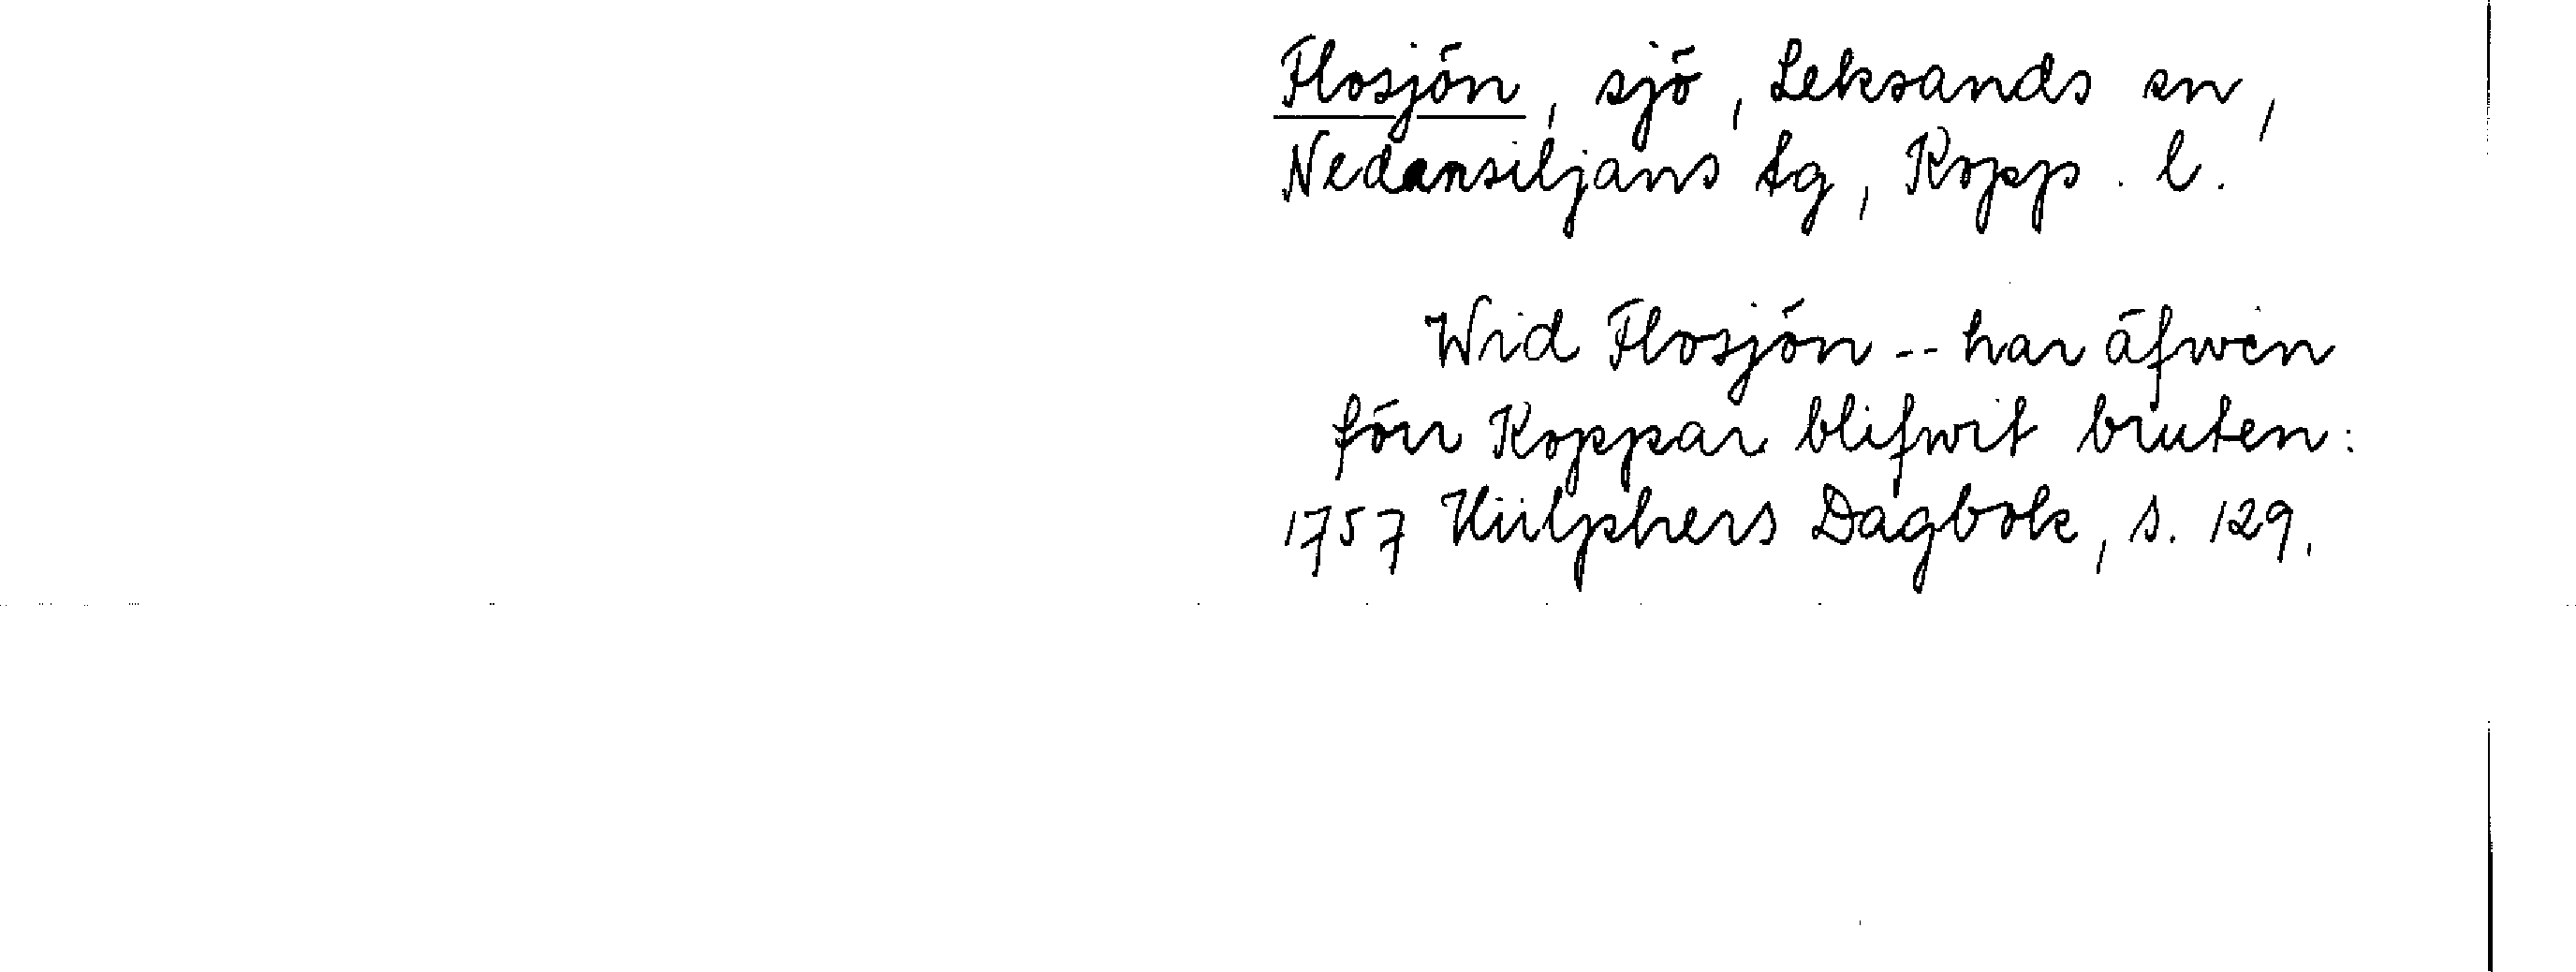 Flosjön, sjö, Leksands sn,
Nedansiljans tg, Kopp. l.
Wid Flosjön -- har äfwen
förr Koppar blifwit bruten:
1757 Hülphers Dagbok, s. 129.